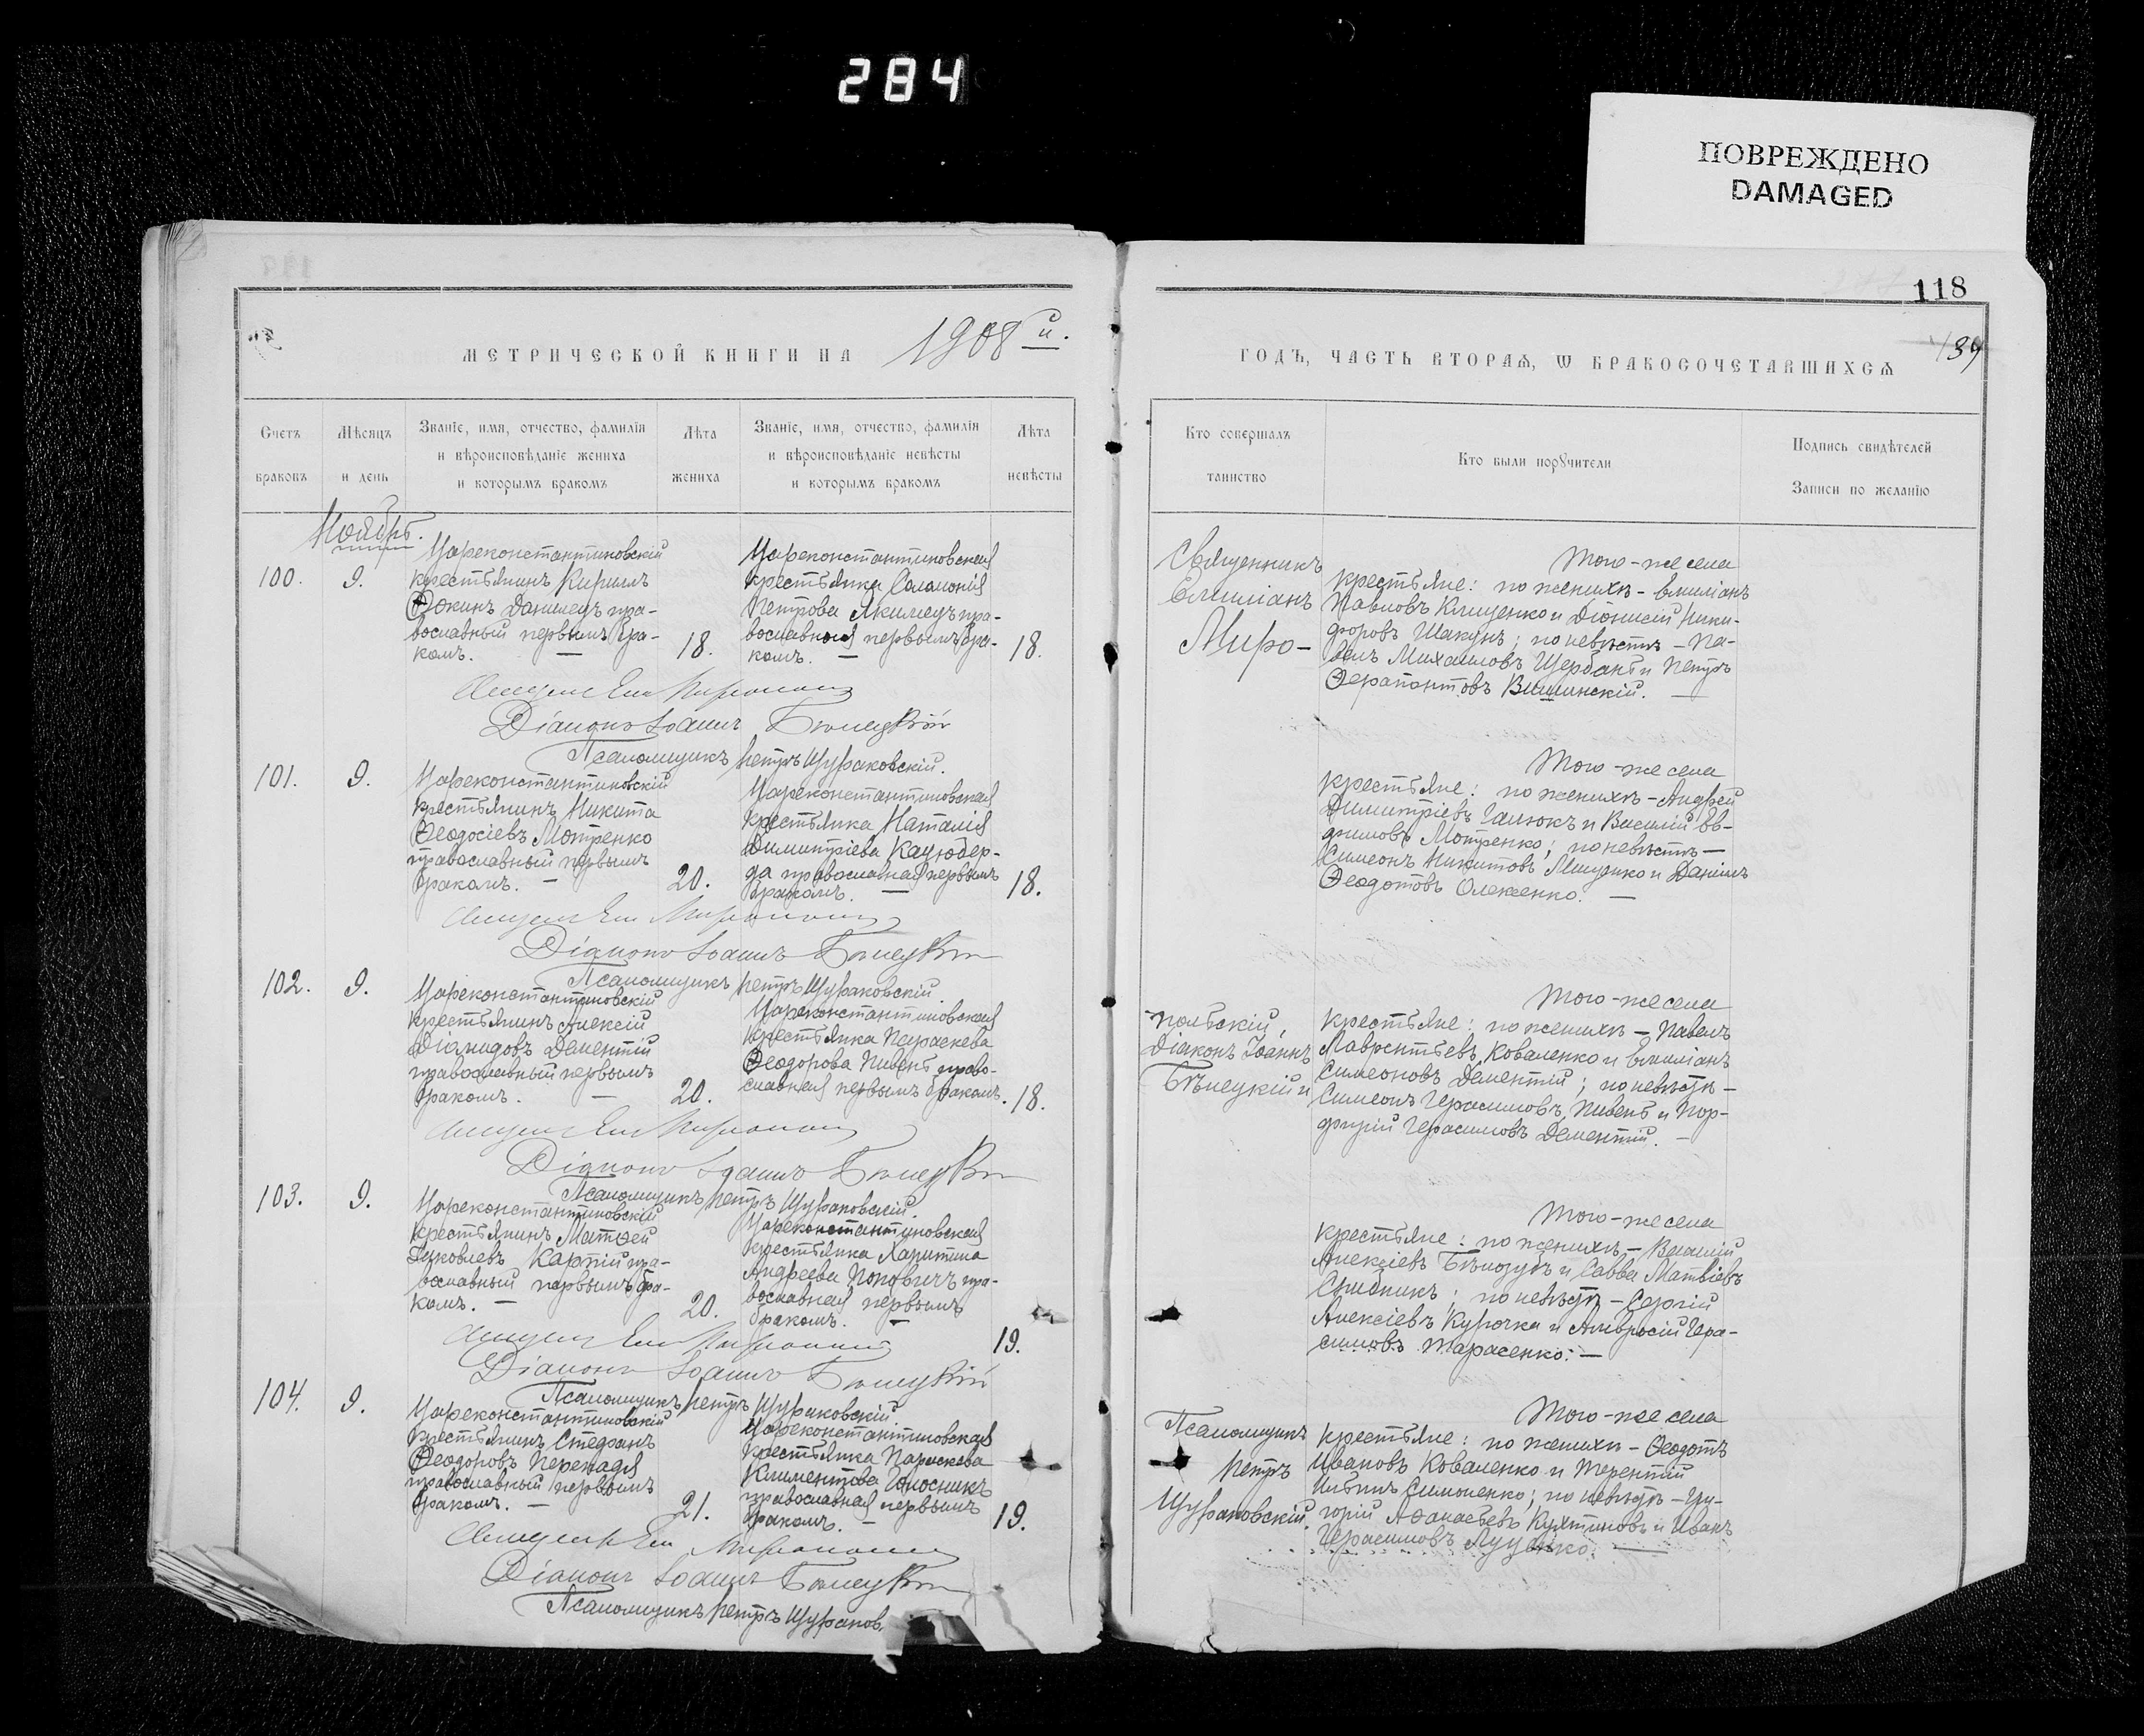 284
ПОВРЕЖДЕНО
DAMAGED
118
139
МЕТРИЧЕСКОЙ КНИГИ НА 1908й.
ГОДЪ, ЧАСТЬ ВТОРАѦ, Ѡ БРАКОСОЧЕТАВШИХСѦ
Счетъ
браковъ
Мѣсяцъ
и день
Званіе, имя, отчество, фамилія
и вѣроисповѣданіе жениха
и которымъ бракомъ
Лѣта
жениха
Званіе, имя, отчество, фамилія
и вѣроисповѣданіе невѣсты
и которымъ бракомъ
Лѣта
невѣсты
Кто совершалъ
таинство
Кто были порꙋчители
Подпись свидѣтелей
Записи по желанію
Ноябрь.
100.
9.
Цареконстантиновскій
крестьянинъ Кириллъ
Ѳокинъ Данилецъ пра-
вославный первымъ бра-
комъ. —
18.
Цареконстантиновская
крестьянка Саломонія
Петрова Якимецъ пра-
вославная первымъ бра-
комъ. —
18.
Священникъ
Емиліанъ
Миро-
Того-же села
крестьяне: по женихѣ - Емиліанъ
Павловъ Клищенко и Діонисій Ники-
форовъ Шакунъ; по невѣстѣ - Па-
велъ Михаиловъ Щербанъ и Петръ
Ѳерапонтовъ Вишинскій. —
Діаконъ Іоаннъ Бѣлецкій
Псаломщикъ Петръ Щураковскій.
101.
9.
Цареконстантиновскій
крестьянинъ Никита
Ѳеодосіевъ Мотренко
православный первымъ
бракомъ. —
20.
Цареконстантиновская
крестьянка Наталія
Димитріева Кацюбер-
да православная первымъ
бракомъ. —
18.
Того-же села
крестьяне: по женихѣ - Андрей
Димитріевъ Галюкъ и Василій Ев-
фимовъ Мотренко; по невѣстѣ —
Симеонъ Никитовъ Мищенко и Даніилъ
Ѳеодотовъ Олексенко. —
Діаконъ Іоаннъ Бѣлецкій
Псаломщикъ Петръ Щураковскій.
102.
9.
Цареконстантиновскій
крестьянинъ Алексій
Діомидовъ Дементій
православный первымъ
бракомъ. —
20.
Цареконстантиновская
крестьянка Параскева
Ѳеодорова Пивень право-
славная первымъ бракомъ.
18.
польскій,
Діаконъ Іоаннъ
Бѣлецкій и
Того-же села
крестьяне: по женихѣ - Павелъ
Лаврентьевъ Коваленко и Емиліанъ
Симеоновъ Дементій; по невѣстѣ -
Симеонъ Герасимовъ Пивень и Пор-
фирій Герасимовъ Дементій. —
Діаконъ Іоаннъ Бѣлецкій
Псаломщикъ Петръ Щураковскій.
103.
9.
Цареконстантиновскій
крестьянинъ Матѳей
Яковлевъ Карпій пра-
вославный первымъ бра-
комъ. —
20.
Цареконстантиновская
крестьянка Харитина
Андреева Поповичъ пра-
вославная первымъ
бракомъ. —
19.
Того-же села
крестьяне: по женихѣ - Василій
Алексіевъ Бѣлозубъ и Савва Матвіевъ
по невѣстѣ - Сергій
Алексіевъ Курочка и Амвросій Гера-
симовъ Тарасенко. —
Діаконъ Іоаннъ Бѣлецкій
Псаломщикъ Петръ Щураковскій.
104.
9.
Цареконстантиновскій
крестьянинъ Стефанъ
Ѳеодоровъ Перепадя
православный первымъ
бракомъ. —
21.
Цареконстантиновская
крестьянка Параскева
Климентова Голосникъ
православная первымъ
бракомъ. —
19.
Псаломщикъ
Петръ
Щураковскій.
Того-же села
крестьяне: по женихѣ - Ѳеодотъ
Ивановъ Коваленко и Терентій
Симоненко; по невѣстѣ - Гри-
горій Аѳанасьевъ и Иванъ
Герасимовъ Луценко. —
Діаконъ Іоаннъ Бѣлецкій
Псаломщикъ Петръ Щураков.